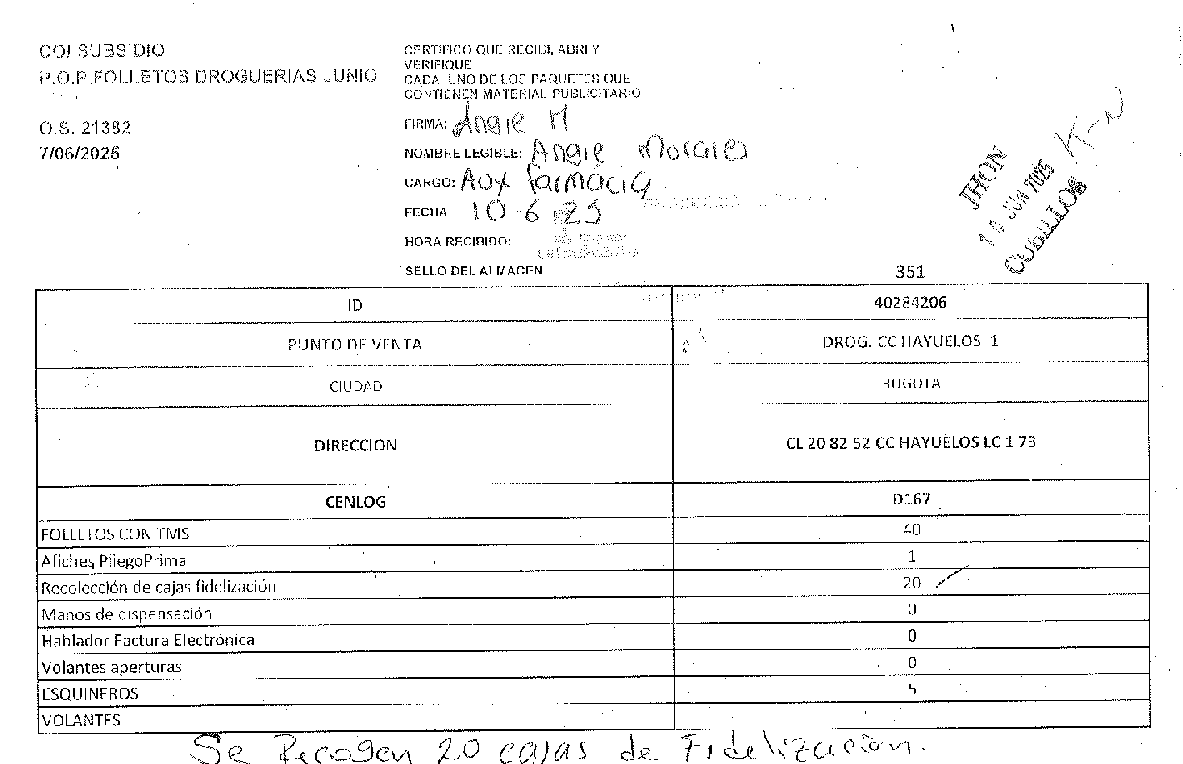 COLSUBSIDIO
P.O.P FOLLETOS DROGUERIAS JUNIO
O.S. 21382
7/06/2025
CERTIFICO QUE RECIBI, ABRI Y
VERIFIQUE
CADA UNO DE LOS PAQUETES QUE
CONTIENEN MATERIAL PUBLICITARIO
FIRMA: Angie M
NOMBRE LEGIBLE: Angie Morales
CARGO: Aux farmacia
FECHA 10-6-25
HORA RECIBIDO:
SELLO DEL ALMACEN
JHON
10 JUN 2025
CUBILLOS
K-N
351
ID 40284206
PUNTO DE VENTA DROG. CC HAYUELOS 1
CIUDAD BOGOTA
DIRECCION CL 20 82 52 CC HAYUELOS LC 1 73
CENLOG D167
FOLLETOS CON TMS 40
Afiches PliegoPrima 1
Recolección de cajas fidelización 20
Manos de dispensación 0
Hablador Factura Electrónica 0
Volantes aperturas 0
ESQUINEROS 5
VOLANTES
Se Recogen 20 cajas de Fidelización.